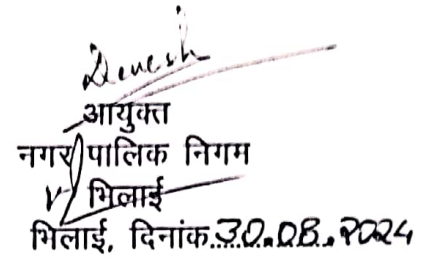 Devesh
आयुक्त
नगर पालिक निगम
भिलाई
भिलाई, दिनांक 30.08.2024